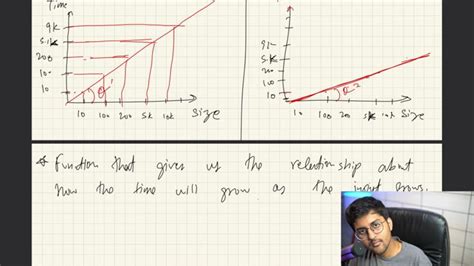 Time
9k
5.1k
200
100
10
10 100 200 5k 10k Size
9k
5.1k
200
100
10
10 100 200 5k 10k Size
* Function that gives us the relationship about
how the time will grow as the input grows.